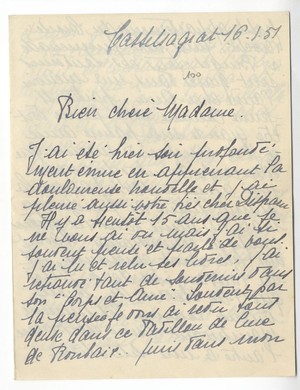 Castelsagrat 16.1.51
100
Bien chère Madame.
J'ai été hier soir profondé
ment émue en apprenant la
douloureuse nouvelle et j'ai
pleuré aussi votre très cher
Il y a bientôt 15 ans que je
ne vous ai vu mais j'ai si
souvent pensé et parlé de vous.
J'ai lu et relu ses livres, j'ai
retrouvé tant de souvenirs dans
son "Corps et Âme". Souvent par
la pensée je vous ai revu tous
deux dans ce Pavillon de
de . Puis dans mon